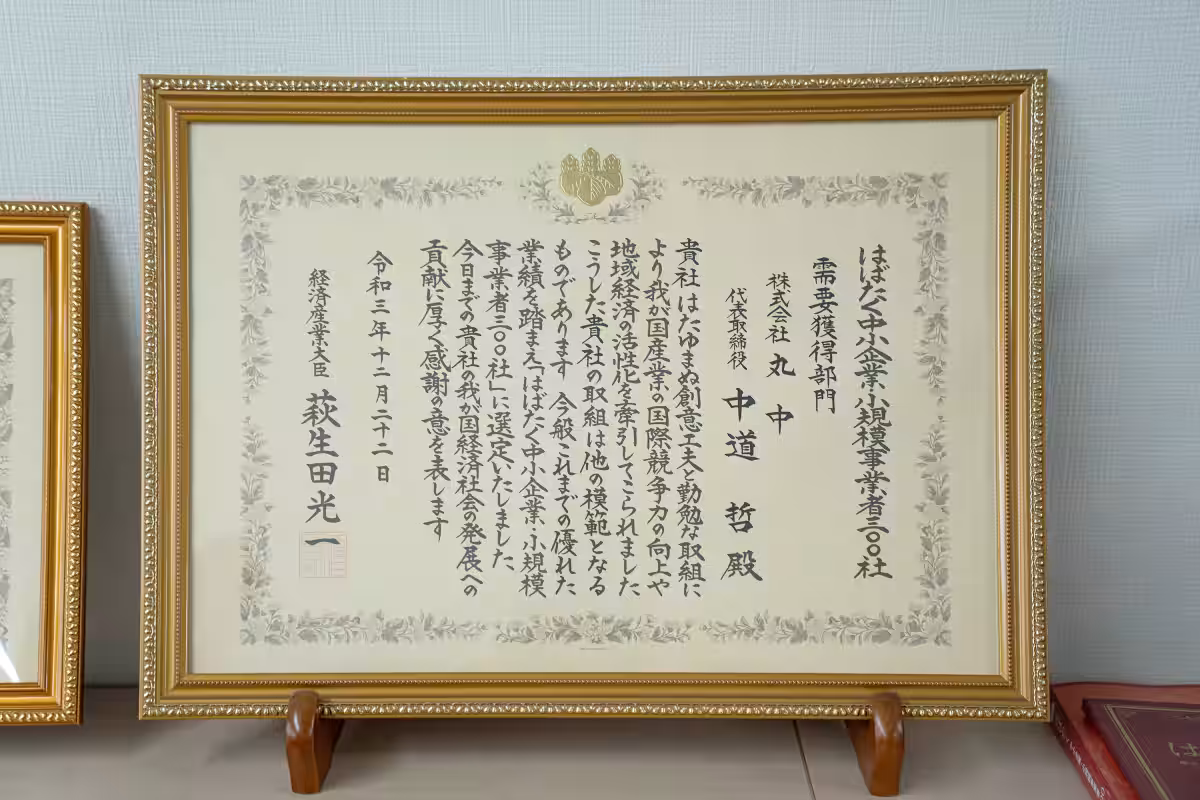 はばたく中小企業・小規模事業者三〇〇社
需要獲得部門
株式会社 丸中
代表取締役 中道 哲 殿
貴社はたゆまぬ創意工夫と勤勉な取組に
より我が国産業の国際競争力の向上や
地域経済の活性化を牽引してこられました
こうした貴社の取組は他の模範となる
ものであります 今般これまでの優れた
業績を踏まえ「はばたく中小企業・小規模
事業者三〇〇社」に選定いたしました
今日までの貴社の我が国経済社会の発展への
貢献に厚く感謝の意を表します
令和三年十二月二十二日
経済産業大臣 萩生田光一